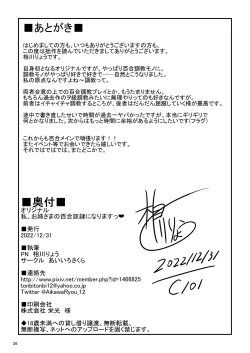 ■あとがき■
はじめましての方も、いつもありがとうございますの方も、
この度は拙作を読んでいただきましてありがとうございます。
相川りょうです。
自身初となるオリジナルですが、やっぱり百合調教モノに。
調教モノがやっぱり好きで好きで……自然とこうなりました。
私の原点なんですよね～調教って。
両者合意の上での百合調教プレイとか、もうたまりません。
もちろん過去作の子猫調教みたいに無理やりってのも好きなんですが、
前者はイチャイチャ調教するところが、後者はだんだん屈服していく様が最高です。
途中で書き直したせいで時間が過去一ヤバかったですが、本当にギリギリで
何とかなりました。次からはもっと時間に余裕があるようにしたいです(フラグ)
これからも百合メインで頑張ります！！
またイベント等でお会いできたら嬉しいです。
それではではでは、またどこかで。
■奥付■
オリジナル
私、お姉さまの百合奴隷になりますっ❤
■発行
2022/12/31
■執筆
PN 相川りょう
サークル あいいろさくら
■連絡先
http://www.pixiv.net/member.php?id=1466825
tonbitonbi12@yahoo.co.jp
Twitter @AikawaRyou_12
■印刷会社
株式会社 栄光 様
◆18歳未満への貸し借り譲渡、無断転載、
無断複写、ネットへのアップロードを固く禁じます。
2022/12/31
C101
26